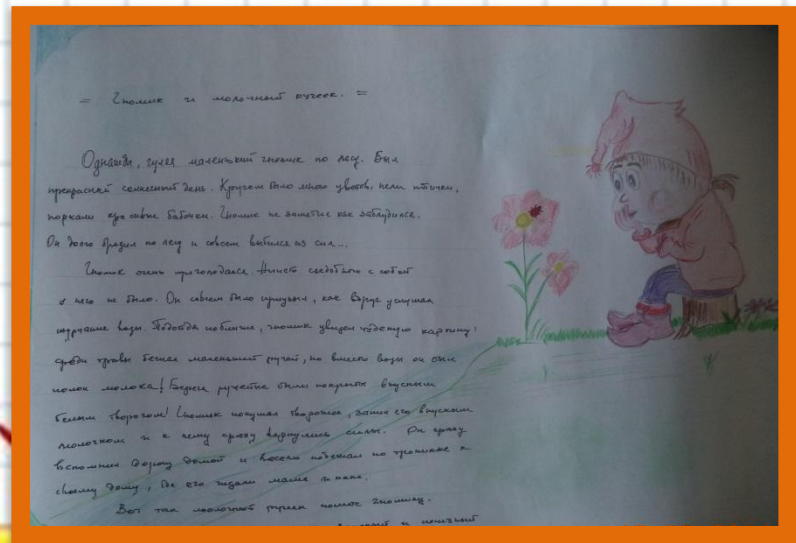 = Гномик и молочный ручеек. =
Однажды, гулял маленький гномик по лесу. Был
прекрасный солнечный день. Кругом было много цветов, пели птички,
порхали красивые бабочки. Гномик не заметил как заблудился.
Он долго бродил по лесу и совсем выбился из сил...
Гномик очень проголодался. Ничего съедобного с собой
у него не было. Он совсем было приуныл, как вдруг услышал
журчание воды. Подойдя поближе, гномик увидел чудесную картину:
среди травы бежал маленький ручей, но вместо воды он был
полон молока! Берега ручейка были покрыты вкусным
белым творогом! Гномик покушал творожка, запил его вкусным
молочком и к нему сразу вернулись силы. Он сразу
вспомнил дорогу домой и весело побежал по тропинке к
своему дому, где его ждали мама и папа.
Вот так молочный ручеек помог гномику.
и